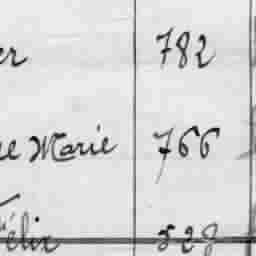 er 782
e Marie 766
Félix 528